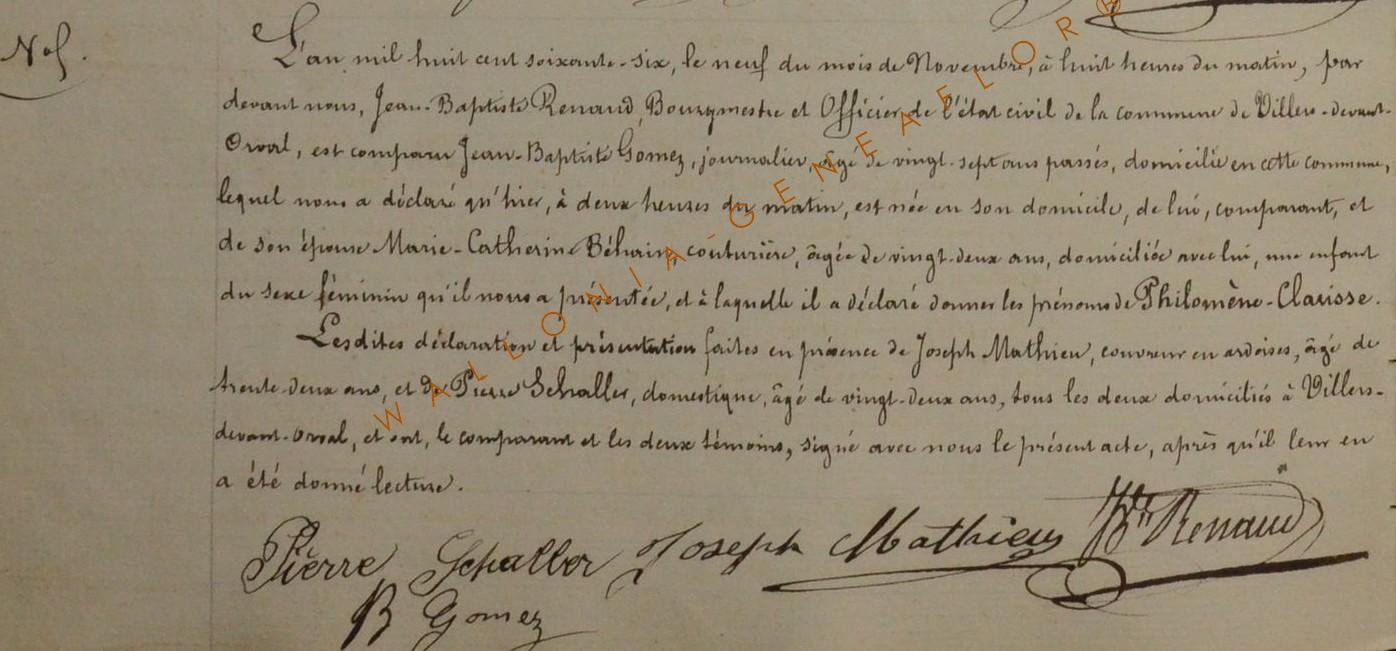 N° 8.
L'an mil huit cent soixante-six, le neuf du mois de Novembre, à huit heures du matin, par
devant nous, Jean-Baptiste Renaud, Bourgmestre et Officier de l'état civil de la commune de Villers-devant-
Orval, est comparu Jean-Baptiste Gomez, journalier, âgé de vingt-sept ans passés, domicilié en cette commune,
lequel nous a déclaré qu'hier, à deux heures du matin, est née en son domicile, de lui, comparant, et
de son épouse Marie-Catherine Béhain, couturière, âgée de vingt-deux ans, domiciliée avec lui, une enfant
du sexe féminin qu'il nous a présentée, et à laquelle il a déclaré donner les prénoms de Philomène-Clarisse.
Lesdites déclaration et présentation faites en présence de Joseph Mathieu, couvreur en ardoises, âgé de
trente-deux ans, et de Pierre Schaller, domestique, âgé de vingt-deux ans, tous les deux domiciliés à Villers-
devant-Orval, et ont, le comparant et les deux témoins, signé avec nous le présent acte, après qu'il leur en
a été donné lecture.
Pierre Schaller Joseph Mathieu Bte Renaud
B Gomez
WALLONIA GENEAFLOR